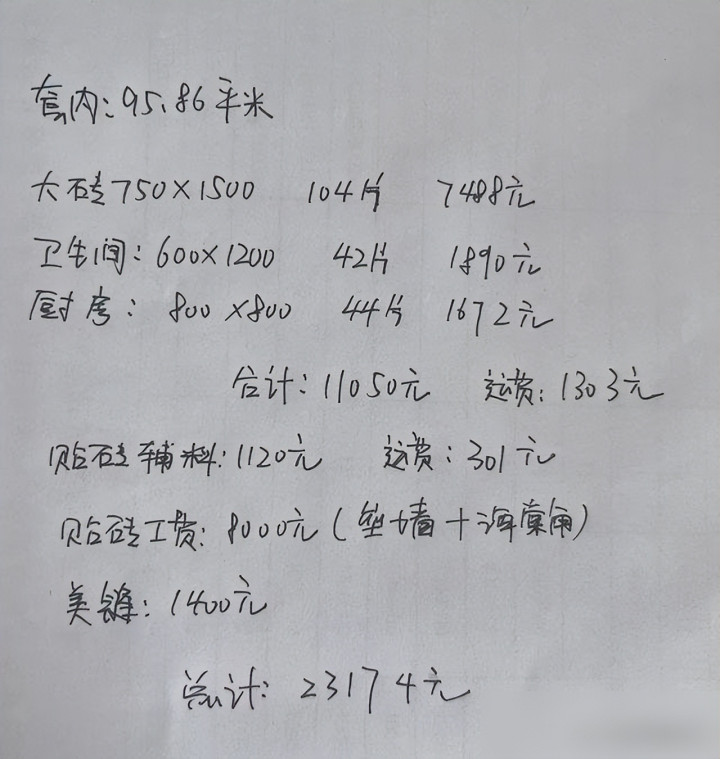 套内:95.86平米
大砖750×1500 104片 7488元
卫生间:600×1200 42片 1890元
厨房:800×800 44片 1672元
合计:11050元 运费:1303元
贴砖辅料:1120元 运费:301元
贴砖工费:8000元(垫墙+海棠角)
美缝:1400元
总计:23174元